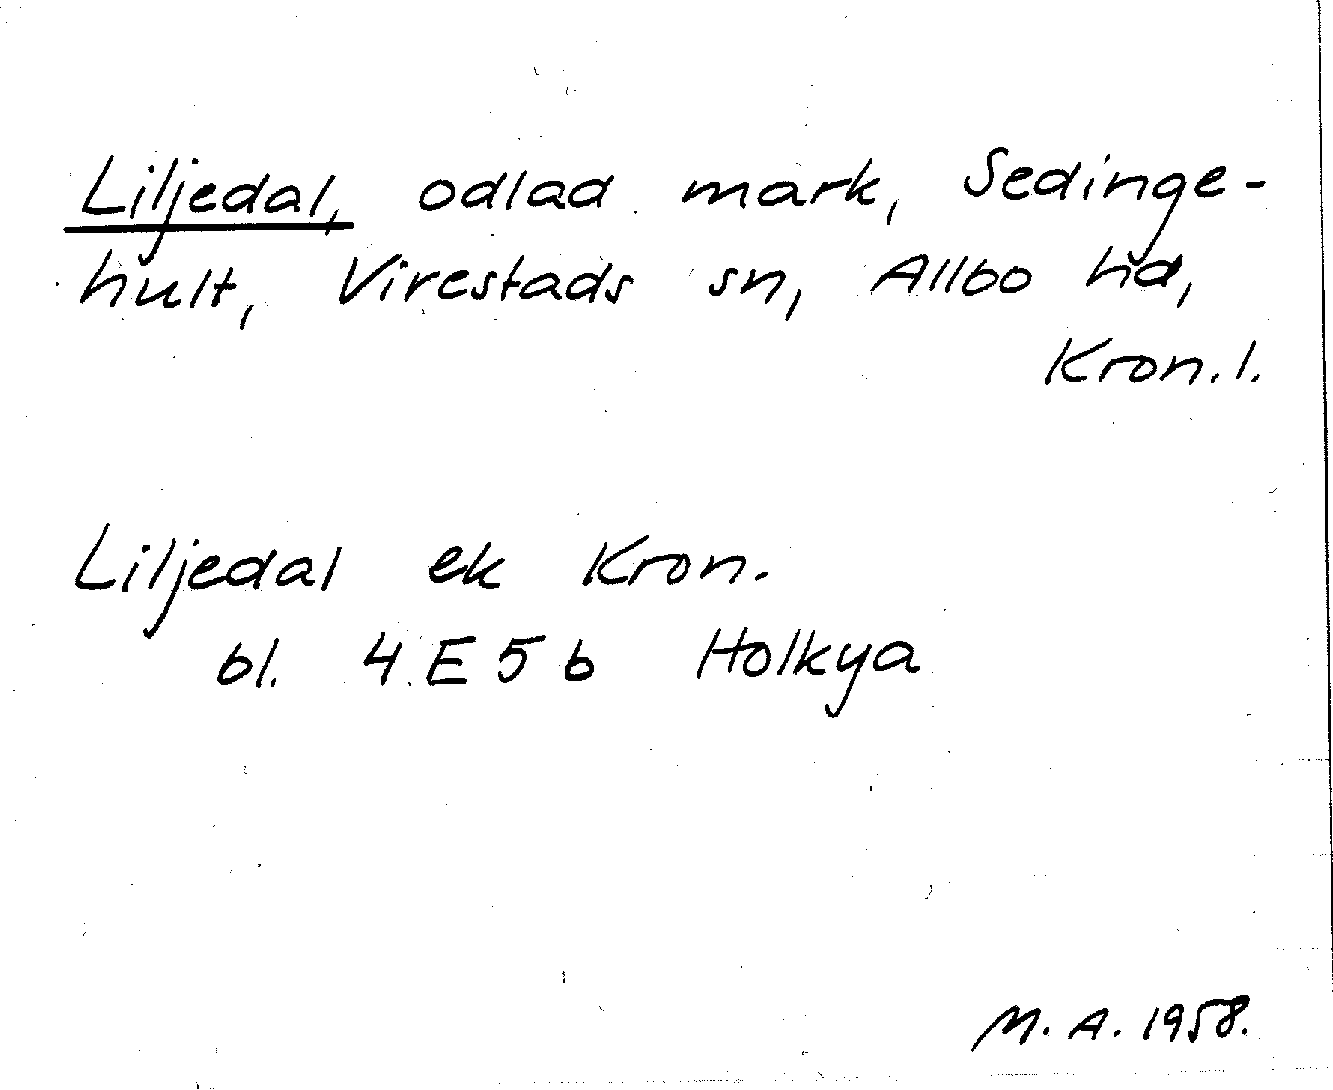 Liljedal, odlad mark, Sedinge-
hult, Virestads sn, Allbo hd,
Kron. l.
Liljedal ek Kron.
bl. 4 E 5 b Holkya
M. A. 1958.